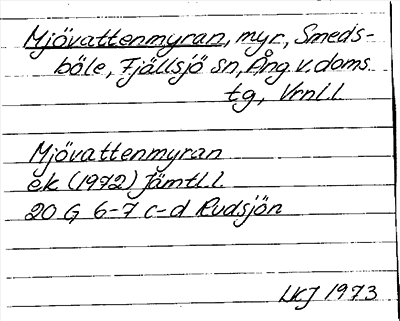 Mjövattenmyran, myr, Smeds-
böle, Fjällsjö sn, Ång. v. doms.
tg, Vrnl. l.
Mjövattenmyran
ek (1972) Jämtl. l.
20 G 6-7 c-d Rudsjön
1973